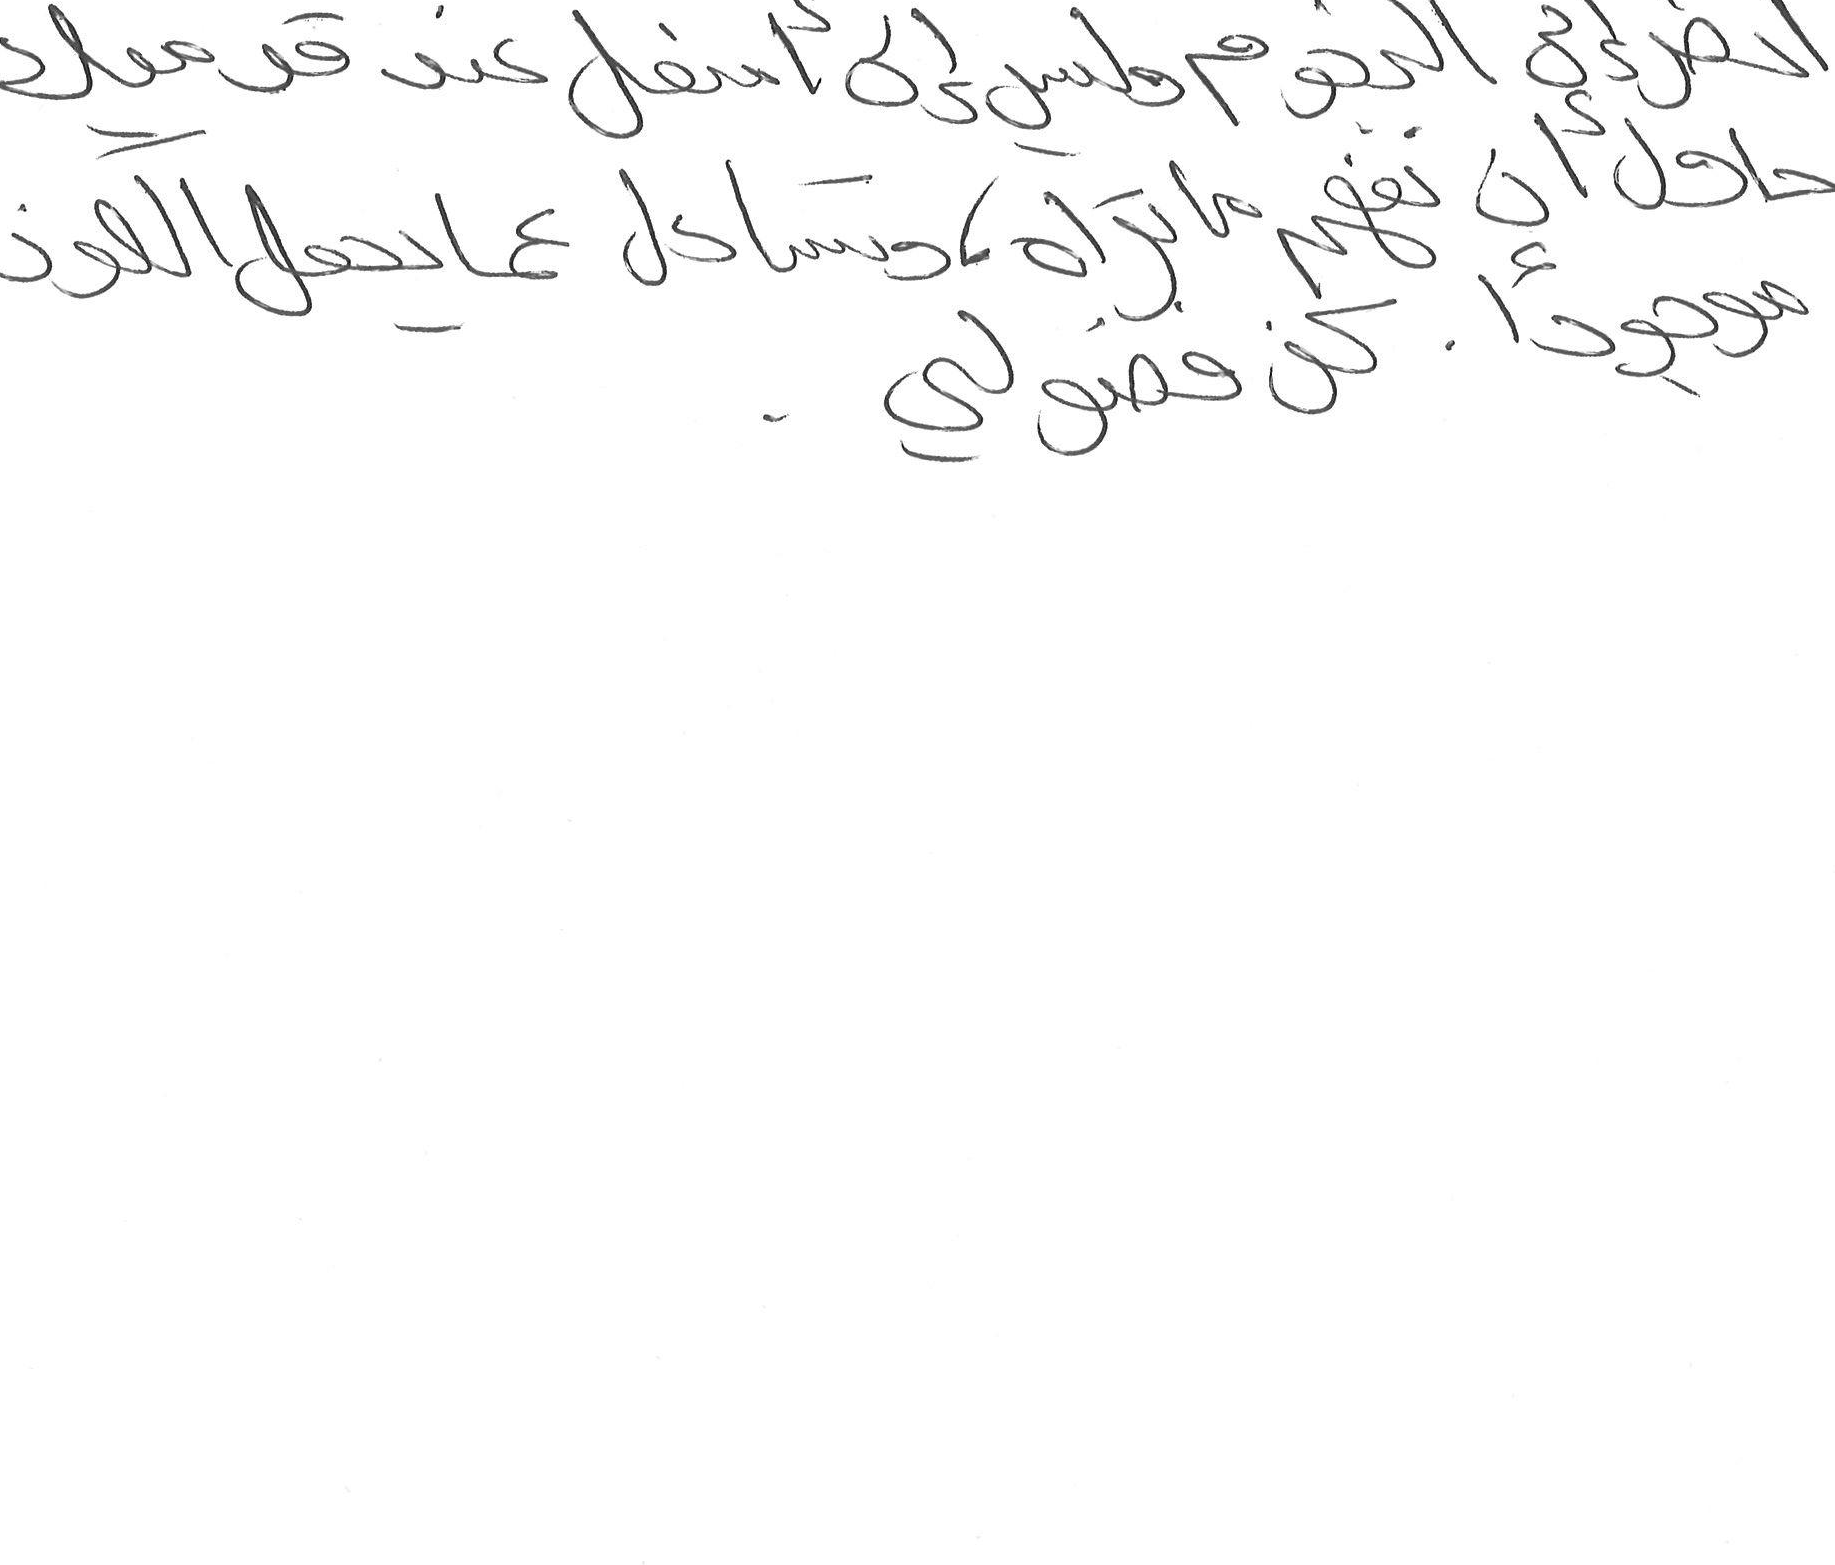 انظر إلى النجوم وليس إلى أسفل عند قدميك
حاول أن تفهم ما تراه، وتساءل عما يجعل الكون
موجودًا. كن فضولي.